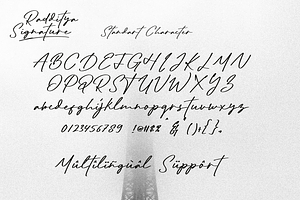 Radditya
Signature
Standart Character
ABCDEFGHIJKLMN
OPQRSTUVWXYZ
abcdefghijklmnopqrstuvwxyz
0123456789 !@#$% & (){}.
Múltílíngùàl Süppôrt